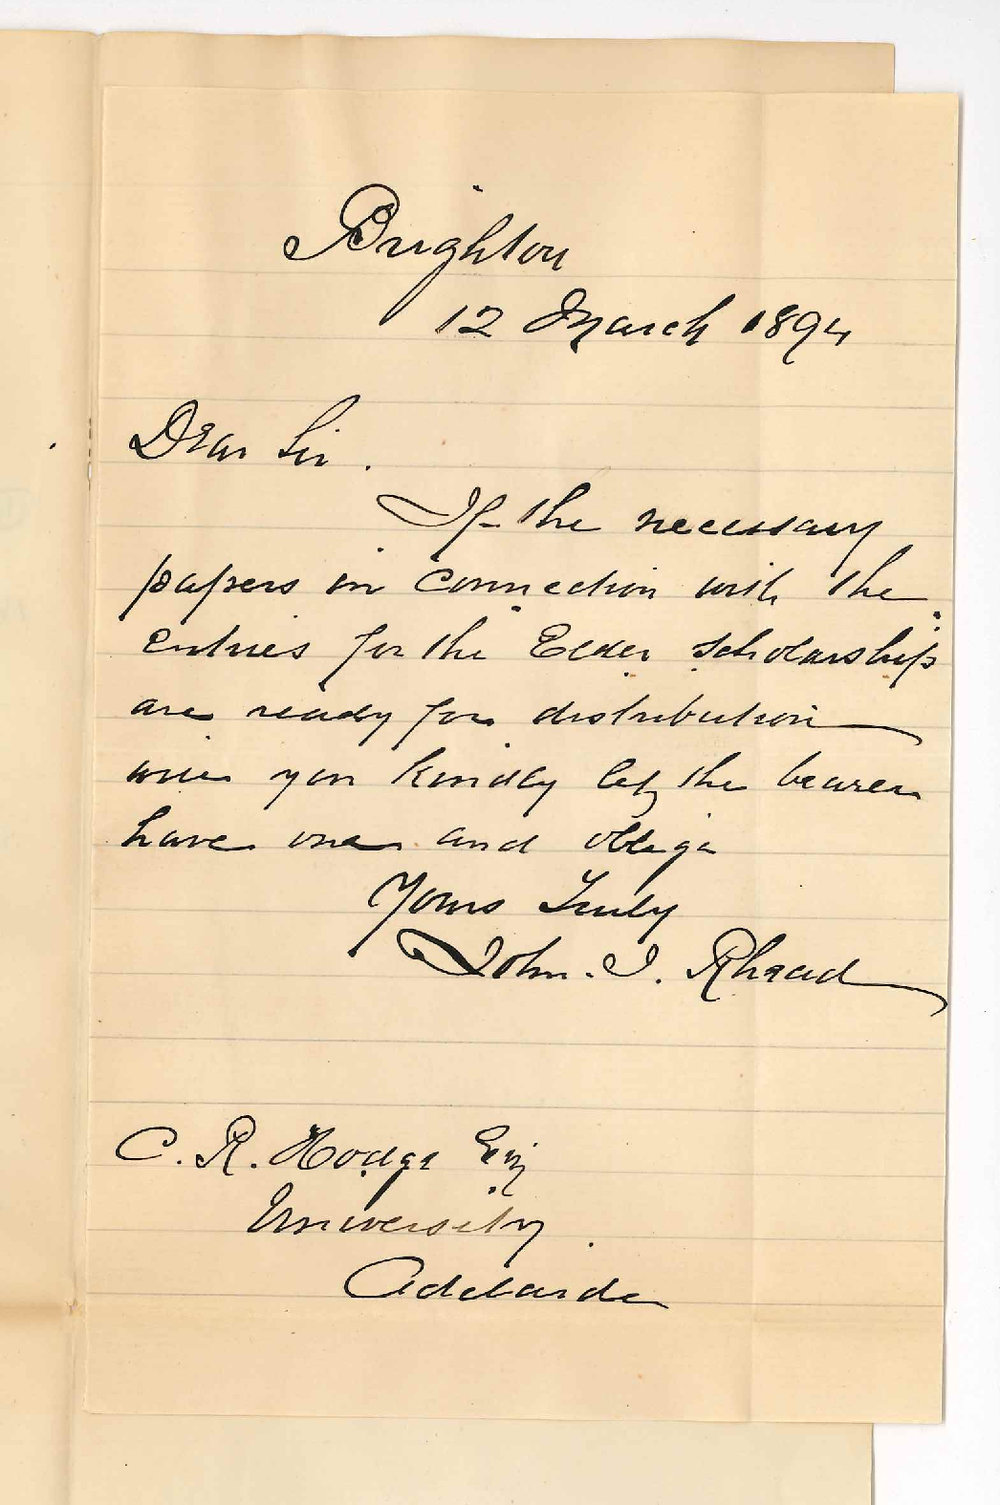 Brighton
12 March 1894
Dear Sir.
If the necessary
papers in connection with the
entries for the Elder Scholarship
are ready for distribution
will you kindly let the bearer
have one and oblige
Yours Truly
John. I. Rhead
C. R. Hodge Esq
University.
Adelaide